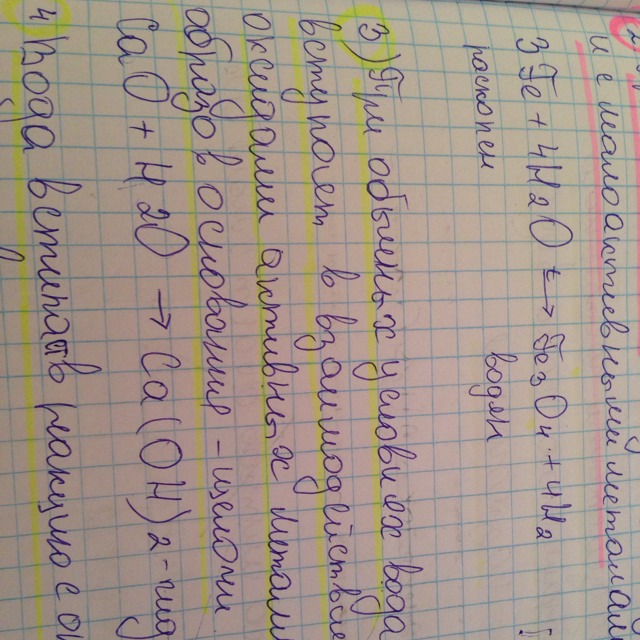 и с малоактивными металлами
3Fe + 4H2O t→ Fe3O4 + 4H2
раскален водян
3) При обычных условиях вода
вступает в взаимодействие
оксидами активных метал
образов основание - щелочи
CaO + H2O → Ca(OH)2 - гид
4 Вода вступать реакцию с